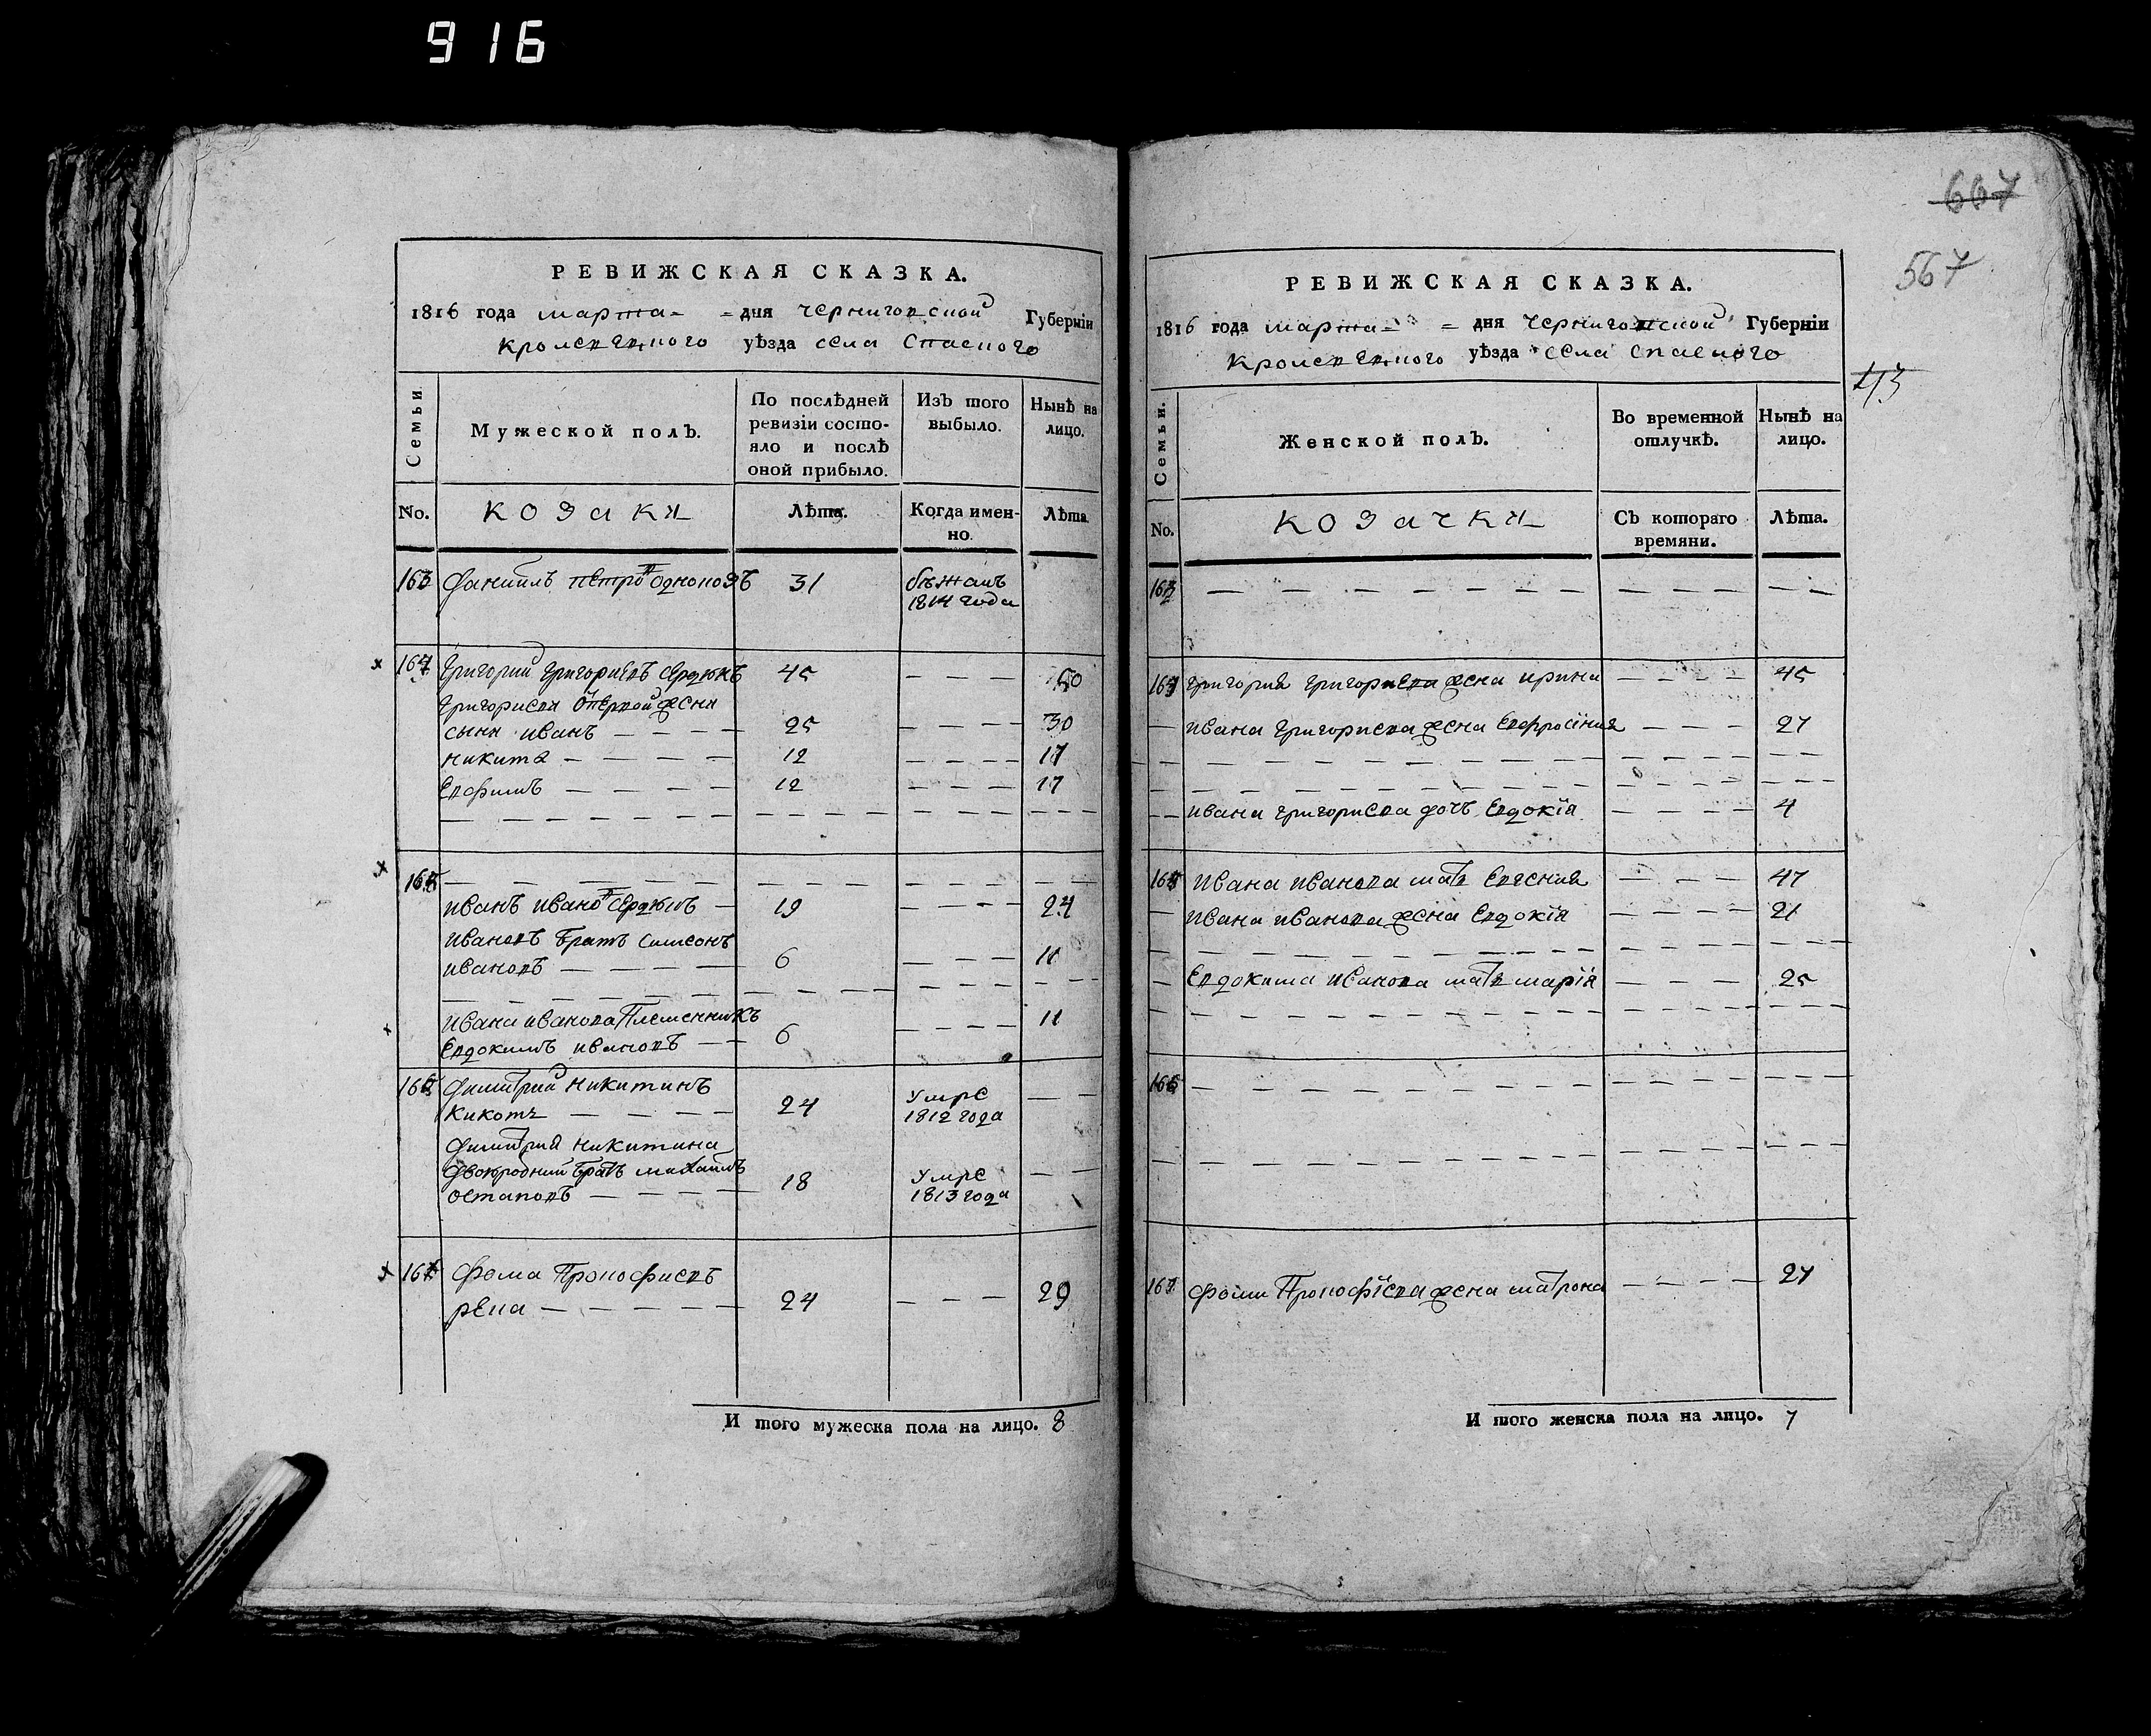 916
667
567
43
РЕВИЖСКАЯ СКАЗКА.
1816 года марта - = дня черниговской Губерніи
кролевецкого уѣзда села Спаского
Семьи
Мужеской полъ.
По послѣдней ревизіи состо-
яло и послѣ
оной прибыло.
Изъ того
выбыло.
Нынѣ на
лицо.
No.
козаки
Лѣта.
Когда имен-
но.
Лѣта.
163 Данiилъ Петровъ Однопозъ 31 бежалъ
1814 года
164 Григорий Григориевъ Сердюкъ 45 — — — 50
Григориева Отпервой жени
сыни иванъ — — — — 25 — — — — 30
никита — — — — 12 — — — — 17
Евфимъ — — — — 12 — — — — 17
165
иванъ ивановъ Сердюкъ — 19 — — — 24
ивановъ братъ Симеонъ
ивановъ — — — — 6 — — — 11
ивана иванова Племенникъ
Евдокимъ ивановъ — — 6 — — — — 11
166 Димитрий никитинъ
кикоть — — — — 24 умре
1812 года — —
Димитрия никитина
двоюродний братъ михаилъ
остаповъ — — — — 18 умре
1813 года — —
167 Фома Прокофиевъ
репа — — — — — 24 — — — 29
И того мужеска пола на лицо. 8
РЕВИЖСКАЯ СКАЗКА.
1816 года марта - = дня черниговской Губерніи
кролевецкого уѣзда села Спаского
Семьи.
Женской полъ.
Во временной
отлучкѣ.
Нынѣ на
лицо.
No.
козачки
Съ котораго
времяни.
Лѣта.
163 — — — — — — — —
164 Григория Григориева жена ирина — — — — 45
— ивана Григориева жена Евфросиния — — — 27
— — ивана григориева дочъ Евдокія — — — — 4
165 ивана иванова мать Евгения — — — 47
— ивана иванова жена Евдокія — — — — 21
— Евдокима иванова мать марія — — — 25
166 — — — — — — — —
167 Фоми Прокофіева жена матрона — — — — 27
И того женска пола на лицо. 7